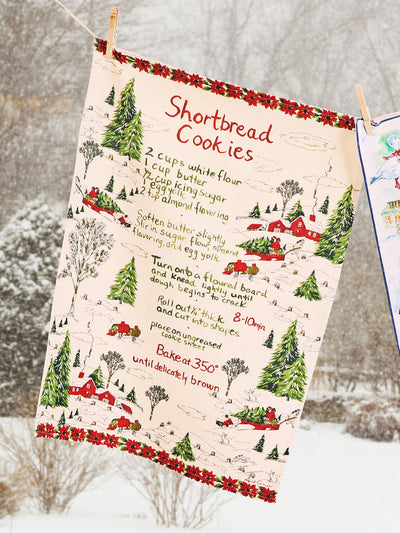 Shortbread
Cookies
2 cups white flour
1 cup butter
1/2 cup icing sugar
1 egg yolk
2 tsp almond flavoring
Soften butter slightly
stir in sugar, flour, almond
flavoring, and egg yolk
Turn onto a floural board
and knead lightly until
dough begins to crack
Roll out 1/4" thick
and cut into shapes
8-10 min
place on ungreased
cookie sheet
Bake at 350°
until delicately brown